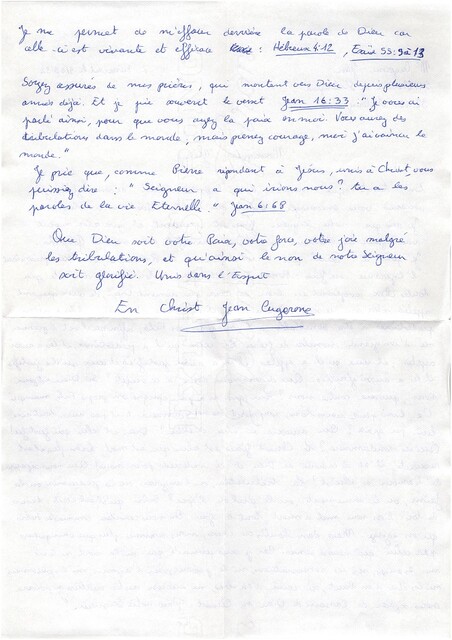 Je me permet de m'effacer derrière la parole de Dieu car
elle-ci est vivante et efficace : Hébreux 4:12, Esaïe 55:9à13
Soyez assurés de mes prières, qui montent vers Dieu depuis plusieurs
années déjà. Et je prie souvent le verset Jean 16:33 : "Je vous ai
parlé ainsi, pour que vous ayez la paix en moi. Vous aurez des
tribulations dans le monde, mais prenez courage, moi j'ai vaincu le
monde."
Je prie que, comme Pierre répondant à Jésus, unis à Christ vous
puissiez dire : "Seigneur à qui irions nous? tu as les
paroles de la vie Eternelle." Jean 6:68
Que Dieu soit votre Paix, votre force, votre joie malgré
les tribulations, et qu'ainsi le nom de notre Seigneur
soit glorifié. Unis dans l'Esprit
En Christ Jean